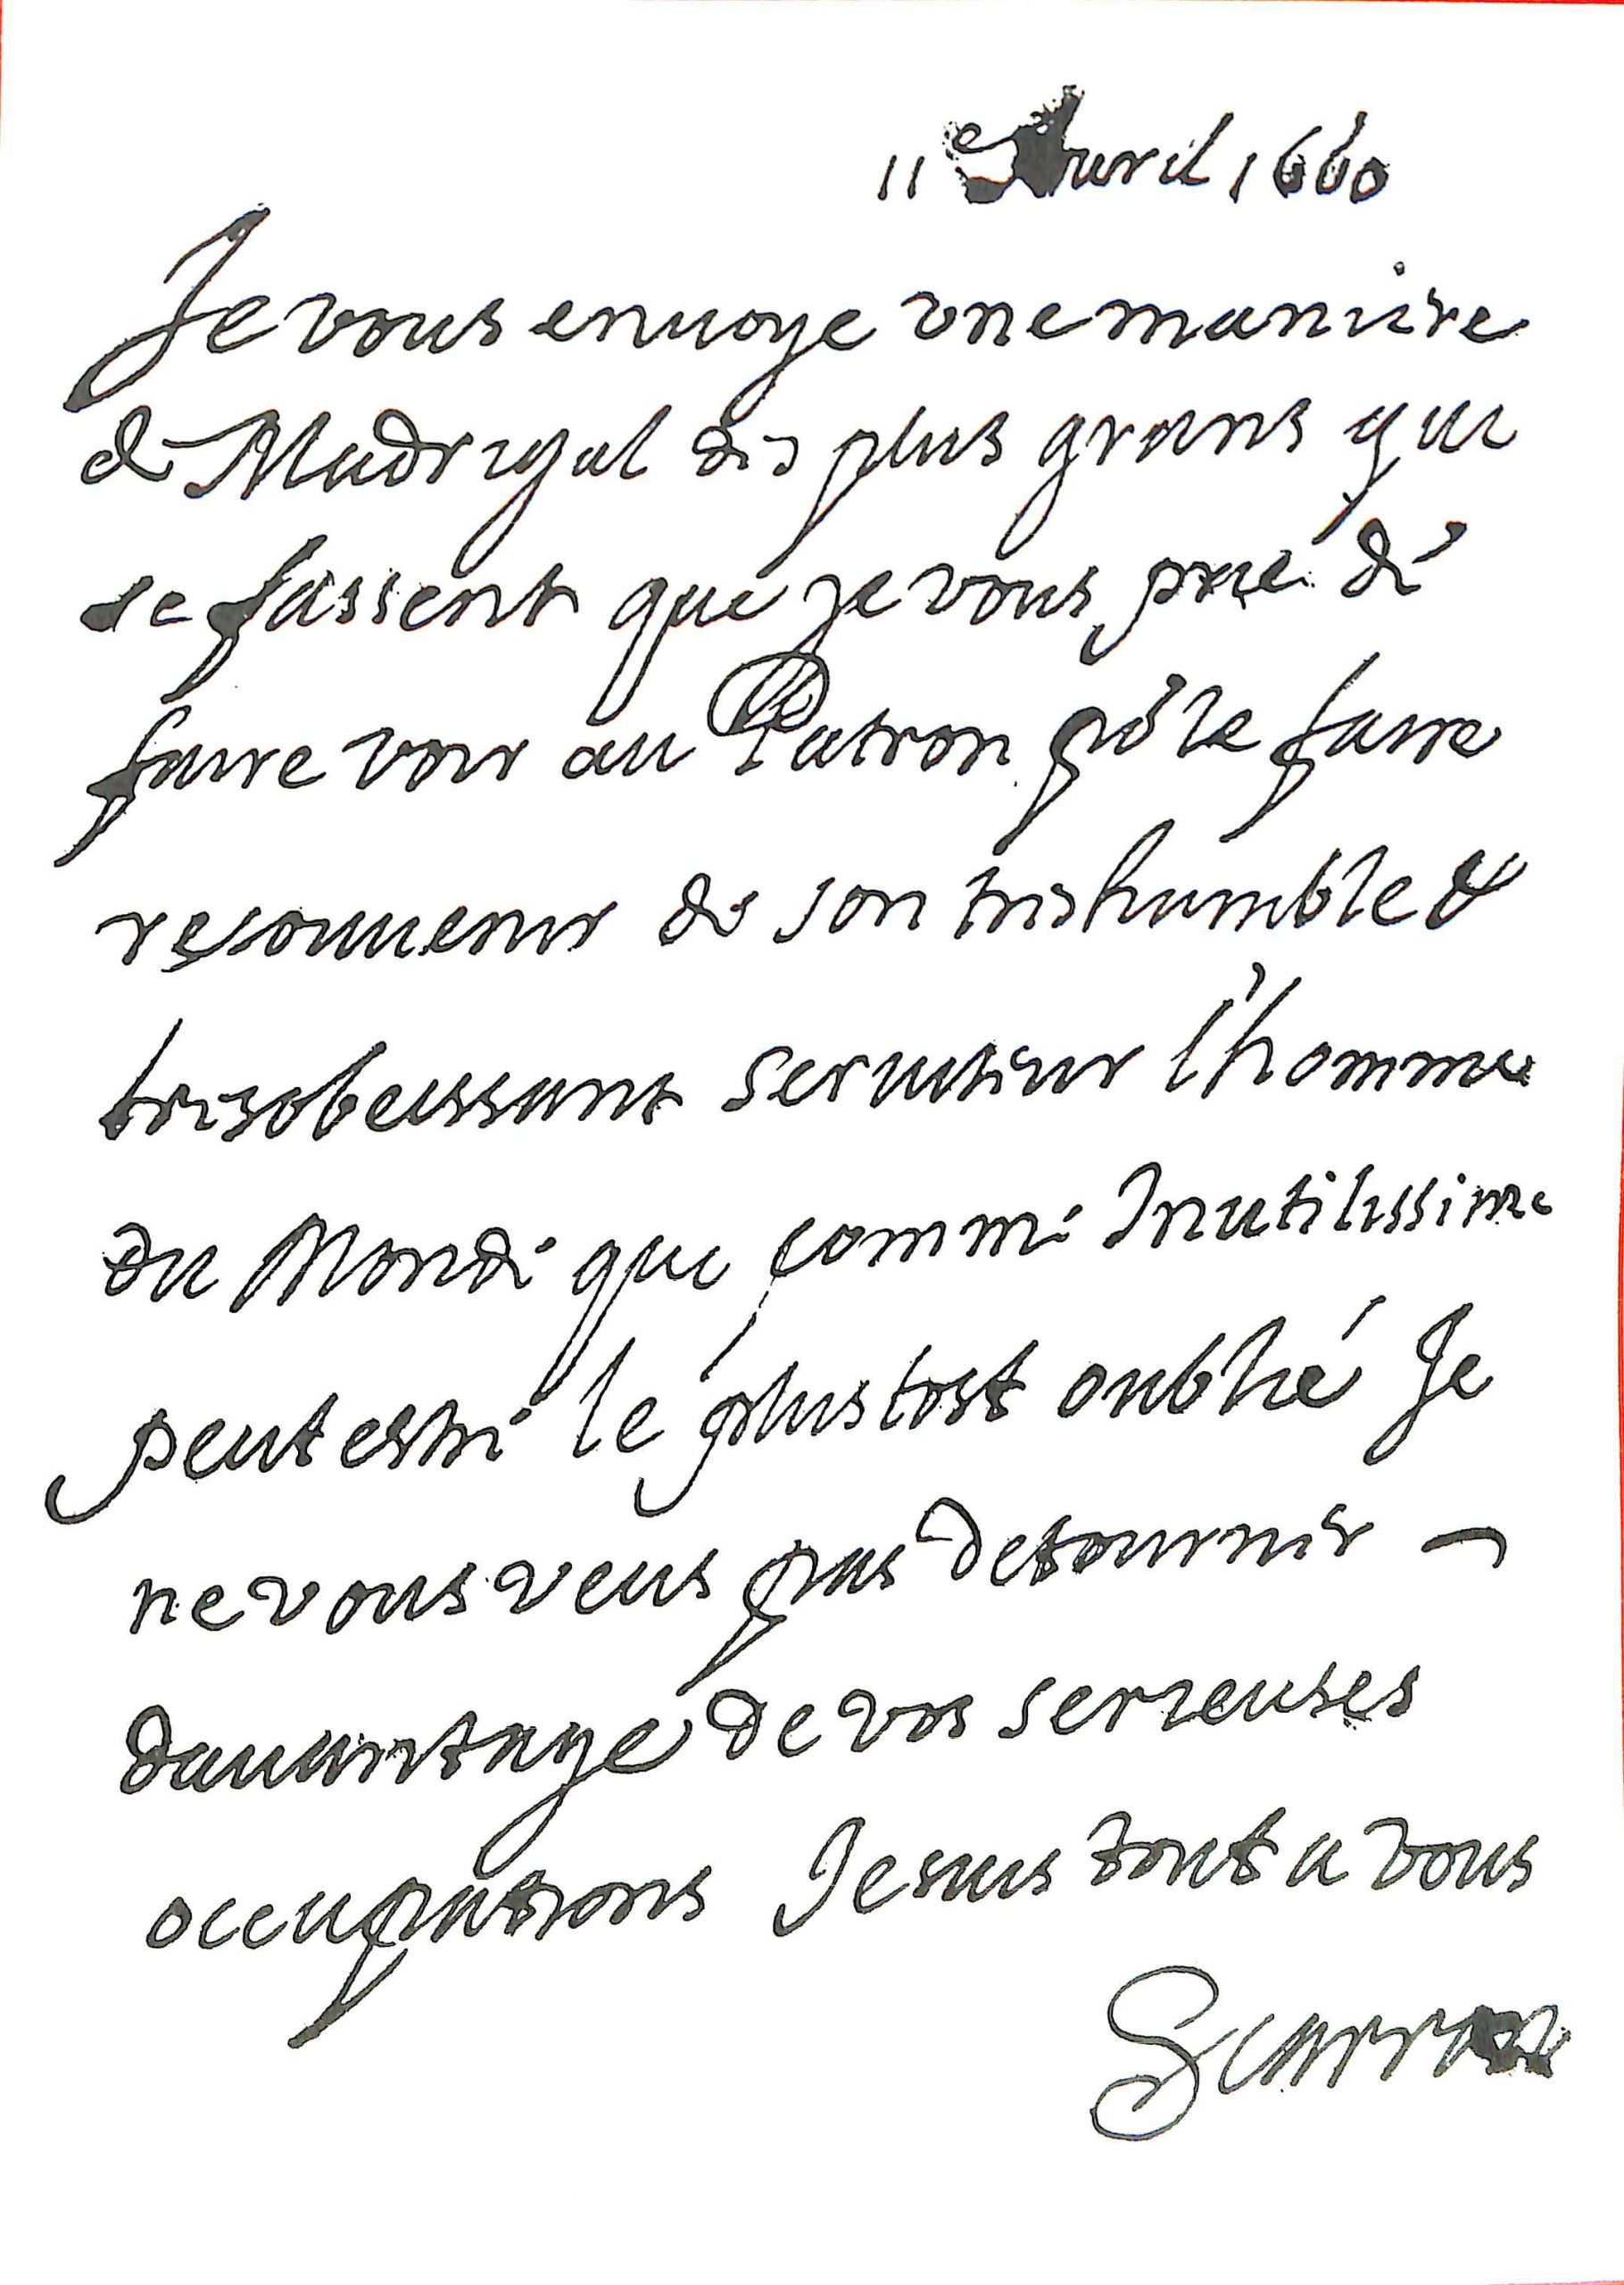 11e Auril 1660
Je vous enuoye vne maniere
de Madrigal des plus grans qui
se fassent que je vous prie de
faire voir au Patron por le faire
resouuenir de son treshumble &
tresobeissant seruiteur l'homme
du Monde que comme Inutilissime
peut estre le plustost oublié Je
ne vous veus pas detourner
dauantage de vos serieuses
occupations Je suis tout a vous
Scarron